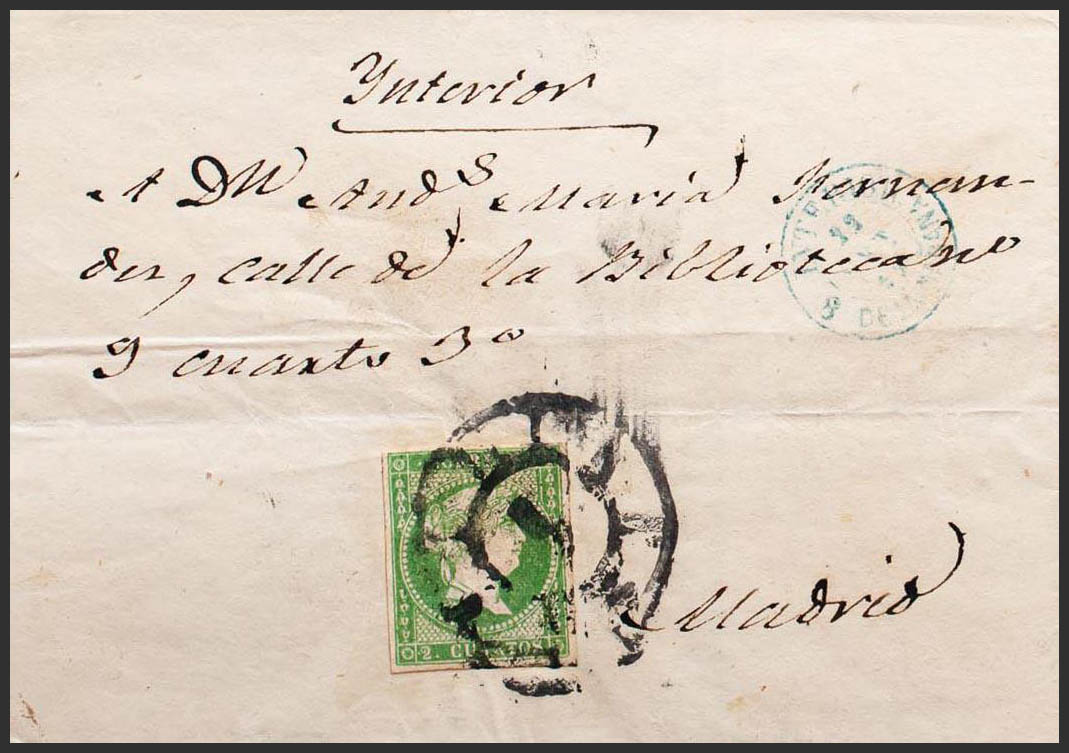 Ynterior
A Dn And.s Maria Fernan-
dez, calle de la Biblioteca no
9 cuarto 3o
Madrid
2. CUARTOS